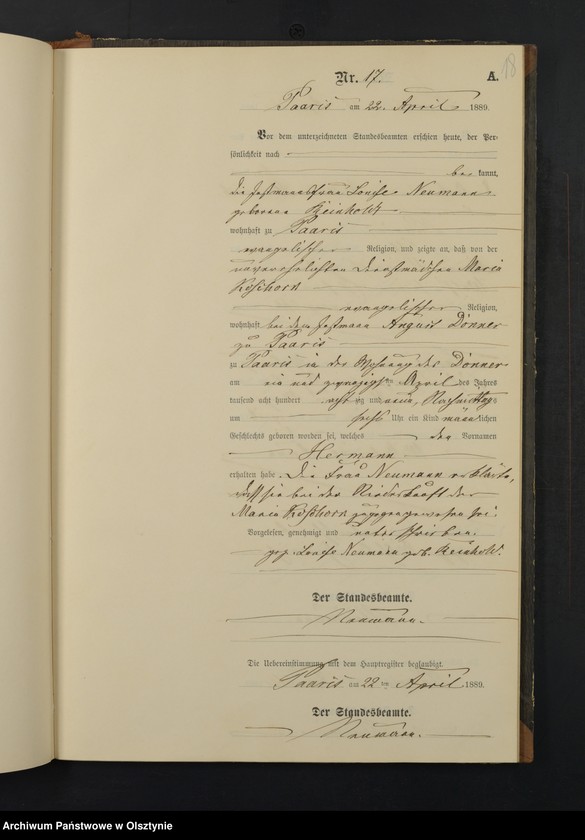 18
Nr. 17. A.
Paaris am 22. April 1889.
Vor dem unterzeichneten Standesbeamten erschien heute, der Per-
sönlichkeit nach
be kannt,
die Instmannsfrau Louise Neumann
geborene Reinholdt
wohnhaft zu Paaris
evangelischer Religion, und zeigte an, daß von der
unverehelichten Dienstmädchen Maria
Koschorr
evangelischer Religion,
wohnhaft bei dem Instmann August Donner
zu Paaris
zu Paaris in der Wohnung des Donner
am ein und zwanzigsten April des Jahres
tausend acht hundert achtzig und neun, Nachmittags
um sechs Uhr ein Kind männlichen
Geschlechts geboren worden sei, welches den Vornamen
Hermann
erhalten habe. Die Frau Neumann erklärte,
daß sie bei der Niederkunft der
Maria Koschorr zugegen gewesen sei.
Vorgelesen, genehmigt und unterschrieben.
gez. Louise Neumann geb. Reinholdt.
Der Standesbeamte.
Naumann.
Die Uebereinstimmung mit dem Hauptregister beglaubigt.
Paaris am 22 ten April 1889.
Der Standesbeamte.
Naumann.
Archiwum Państwowe w Olsztynie